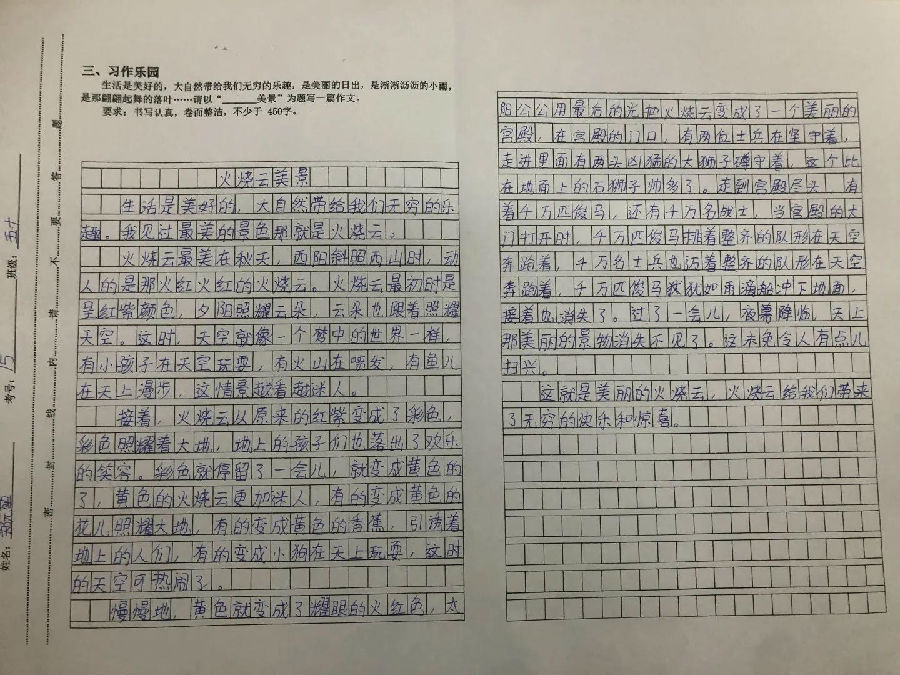 三、习作乐园
生活是美好的，大自然带给我们无穷的乐趣，是美丽的日出，是淅淅沥沥的小雨，
是那翩翩起舞的落叶……请以“______美景”为题写一篇作文。
要求：书写认真，卷面整洁，不少于450字。
火烧云美景
生活是美好的，大自然带给我们无穷的乐
趣。我见过最美的景色那就是火烧云。
火烧云最美在秋天，西阳斜照西山时，动
人的是那火红火红的火烧云。火烧云最初时是
呈红紫颜色，夕阳照耀云朵，云朵也跟着照耀
天空。这时，天空就像一个梦中的世界一样，
有小孩子在天空玩耍，有火山在喷发，有鱼儿
在天上漫步，这情景越看越迷人。
接着，火烧云从原来的红紫变成了彩色，
彩色照耀着大地，地上的孩子们也落出了欢乐
的笑容。彩色就停留了一会儿，就变成黄色的
了，黄色的火烧云更加迷人，有的变成黄色的
花儿照耀大地，有的变成黄色的香蕉，引诱着
地上的人们，有的变成小狗在天上玩耍，这时
的天空可热闹了。
慢慢地，黄色就变成了耀眼的火红色，太
阳公公用最后的光把火烧云变成了一个美丽的
宫殿，在宫殿的门口，有两位士兵在坚守着，
走进里面有两头凶猛的大狮子蹲守着，这个比
在地面上的石狮子帅多了。走到宫殿尽头，有
着千万匹俊马，还有千万名战士，当宫殿的大
门打开时，千万匹俊马排着整齐的队形在天空
奔跑着，千万名士兵也迈着整齐的队形在天空
奔跑着，千万匹俊马犹如雨滴般冲下地面，
接着也消失了。过了一会儿，夜幕降临，天上
那美丽的景物消失不见了。这未免令人有点儿
扫兴。
这就是美丽的火烧云，火烧云给我们带来
了无穷的快乐和惊喜。
姓名：
考号：15
班级：五十
密封线内请不要答题